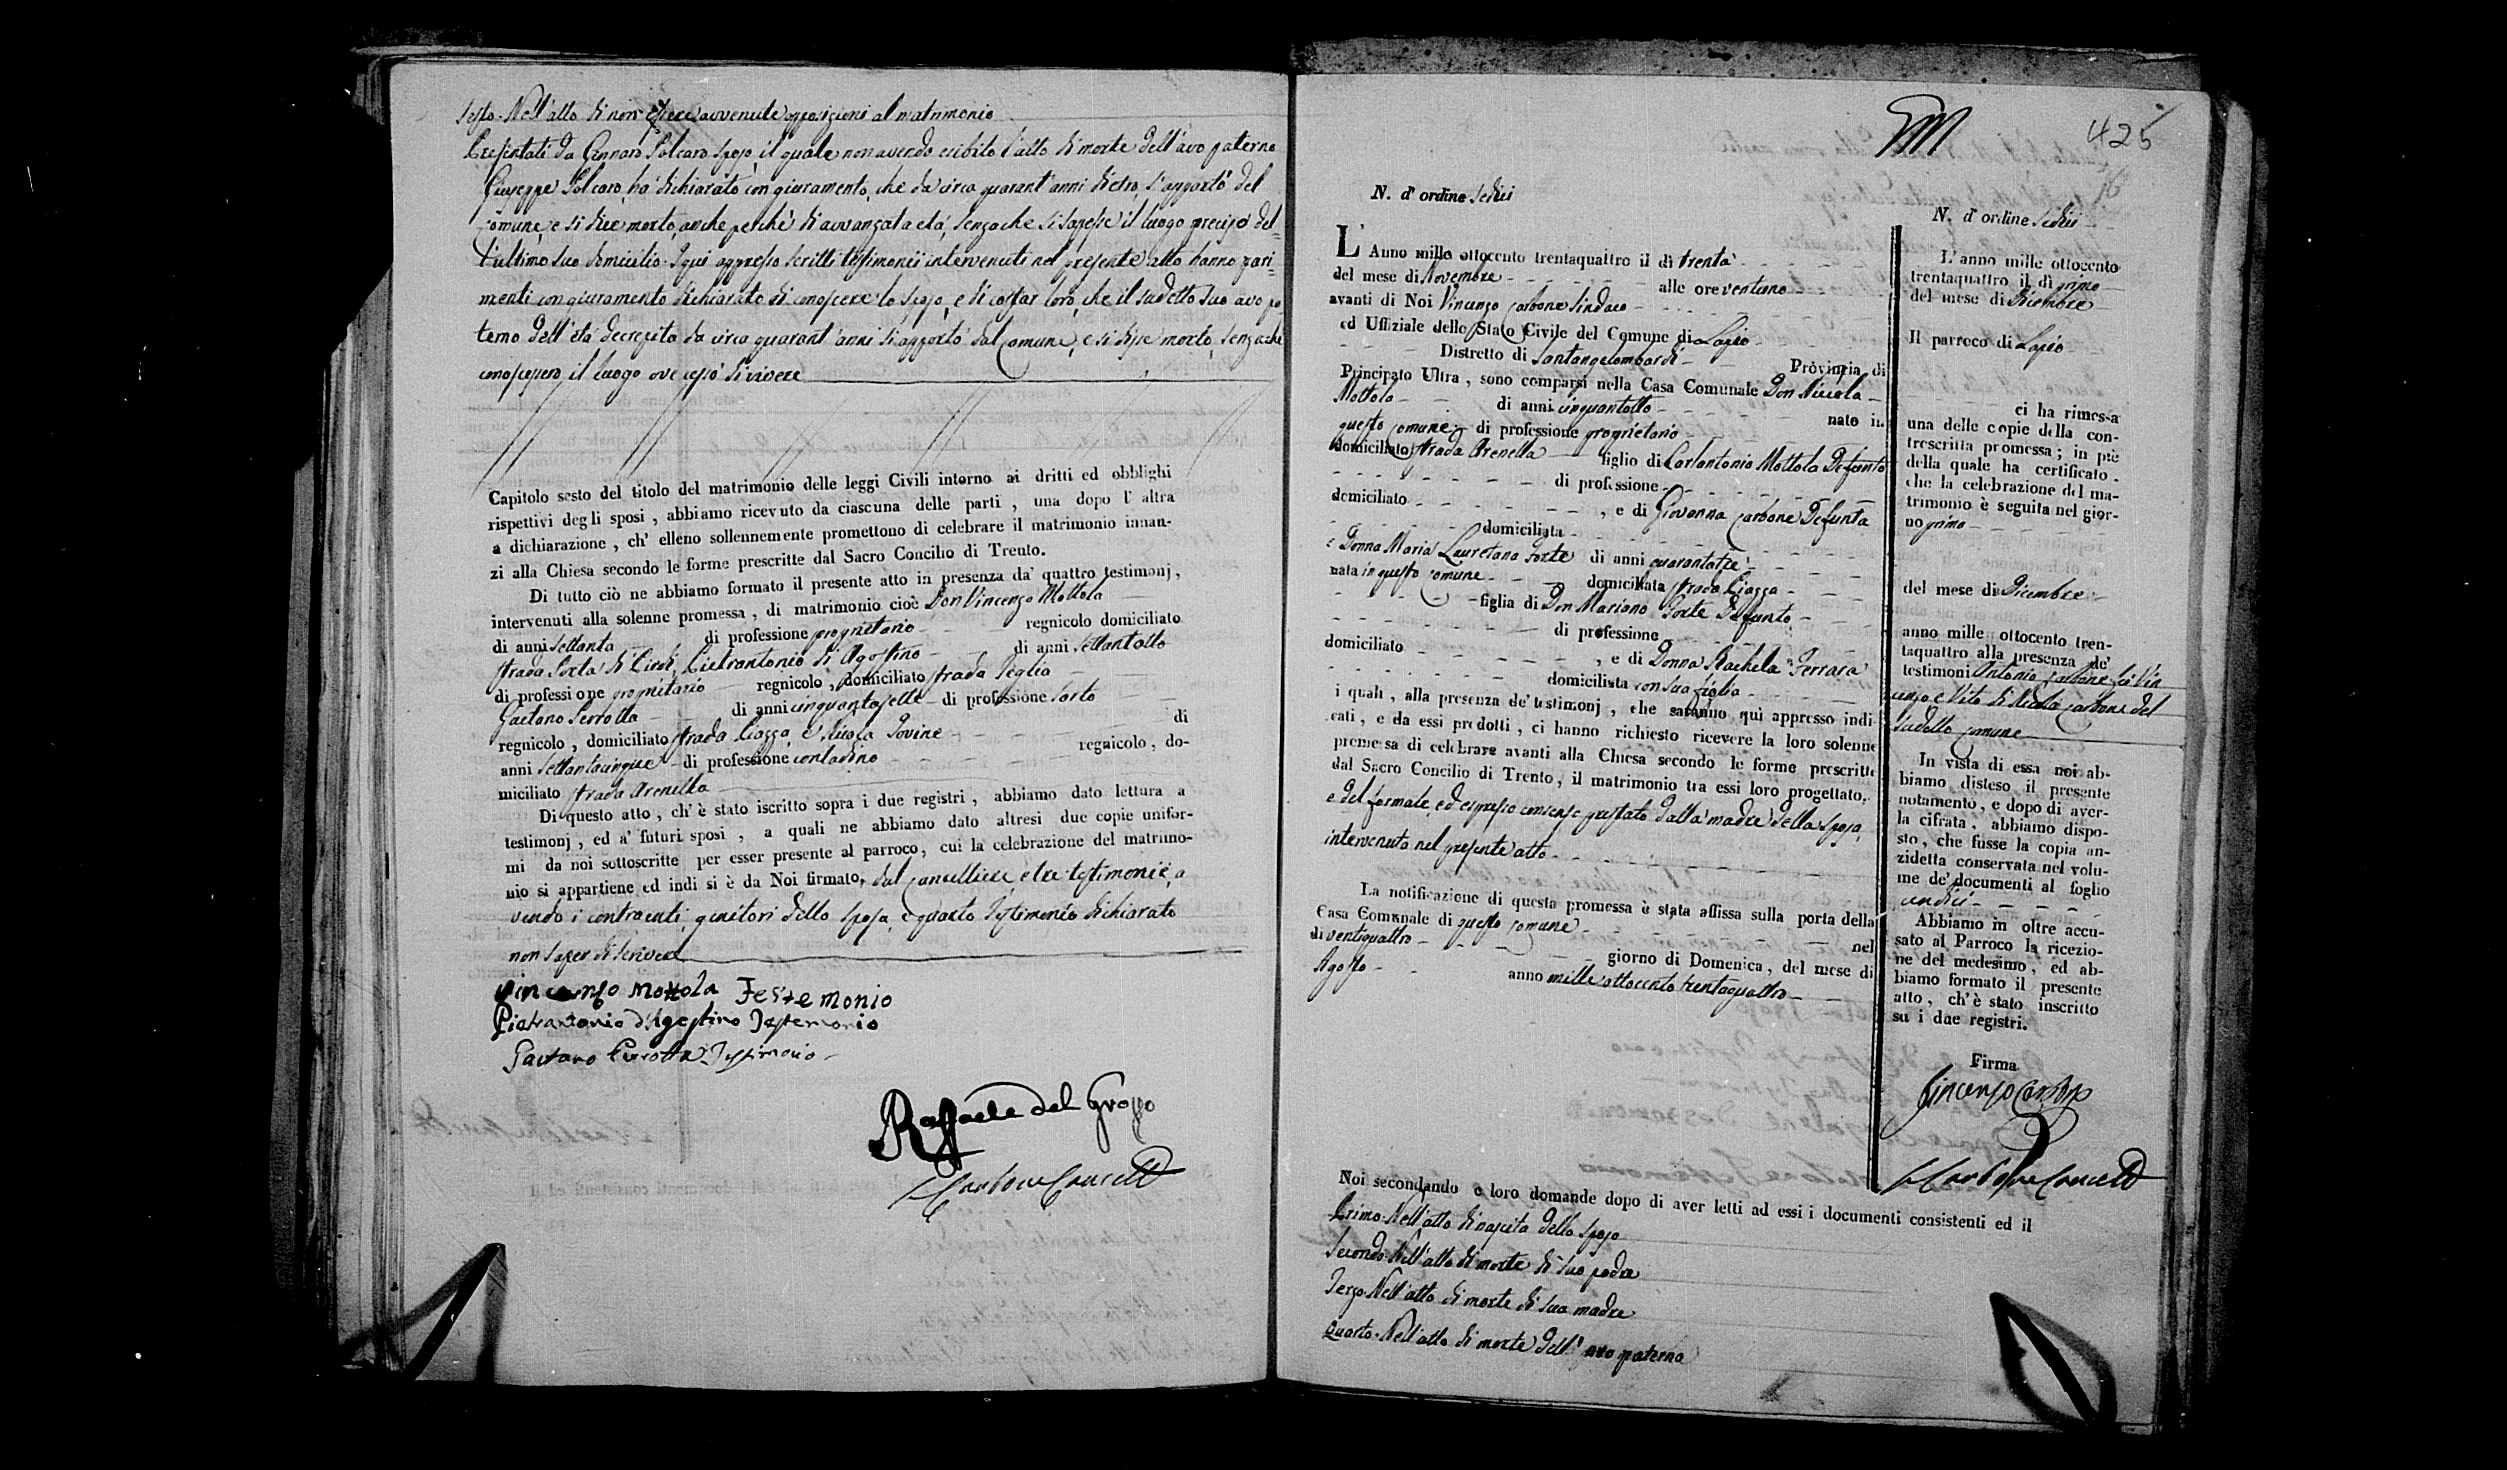 Sesto. Nell'atto di non essere avvenute opposizioni al matrimonio
Presentati da Gennaro Polcaro sposo, il quale non avendo esibito l'atto di morte dell'avo paterno
Giuseppe Polcaro, ha dichiarato con giuramento, che da circa quarant'anni dietro, s'appartò del
comune, e si dice morto, anche perché di avvanzata età, senza che si sapesse il luogo preciso del-
l'ultimo suo domicilio. I qui appresso scritti testimonii intervenuti nel presente atto hanno pari-
menti con giuramento dichiarato di conoscere lo sposo, e di costar loro, che il sudetto suo avo pa-
terno dell'età decrepita da circa quarant'anni si appartò dal comune, e si disse morto, senza che
conoscessero il luogo ove cessò di vivere
Capitolo sesto del titolo del matrimonio delle leggi Civili intorno ai dritti ed obblighi
rispettivi degli sposi, abbiamo ricevuto da ciascuna delle parti, una dopo l'altra
a dichiarazione, ch'elleno sollennemente promettono di celebrare il matrimonio innan-
zi alla Chiesa secondo le forme prescritte dal Sacro Concilio di Trento.
Di tutto ciò ne abbiamo formato il presente atto in presenza da' quattro testimonj,
intervenuti alla solenne promessa, di matrimonio cioè Don Vincenzo Mottola
di anni settanta di professione proprietario regnicolo domiciliato
strada Porta di Piedi, Pietrantonio di Agostino di anni settantotto
di professione proprietario regnicolo, domiciliato strada Teglia
Gaetano Perrotta di anni cinquantasette di professione Sarto
regnicolo, domiciliato strada Piazza, e Nicola Iovine di
anni settantacinque di professione contadino regnicolo, do-
miciliato strada Arenella
Di questo atto, ch'è stato iscritto sopra i due registri, abbiamo dato lettura a
testimonj, ed a' futuri sposi, a quali ne abbiamo dato altresì due copie unifor-
mi da noi sottoscritte per esser presente al parroco, cui la celebrazione del matrimo-
nio si appartiene ed indi si è da Noi firmato, dal Cancelliere, e tre testimonii, a
vendo i contraenti, genitori dello sposa, e quarto testimonio dichiarato
non saper di scrivere
Vincenzo Mottola Testemonio
Pietrantonio d'Agostino Testemonio
Gaetano Perrotta Testimonio
Raffaele del Grosso
Carbone Cancell
425
16
N. d'ordine Sedici
L'Anno mille ottocento trentaquattro il dì trenta
del mese di Novembre alle ore ventuno
avanti di Noi Vincenzo Carbone Sindaco
ed Uffiziale dello Stato Civile del Comune di Lapio
Distretto di Santangelombardi Provincia di
Principato Ultra, sono comparsi nella Casa Comunale Don Nicola
Mottola di anni cinquantotto nato in
questo comune di professione proprietario
domiciliato strada Arenella figlio di Carlantonio Mottola Defunto
di professione
domiciliato , e di Giovanna Carbone Defunta
domiciliata
e Donna Maria Lauretana Forte di anni quarantatre
nata in questo comune domiciliata strada Piazza
figlia di Don Mariano Forte Defunto
di professione
domiciliato , e di Donna Rachela Ferrara
domiciliata con sua figlia
i quali, alla presenza de' testimonj, che saranno quì appresso indi-
cati, e da essi prodotti, ci hanno richiesto ricevere la loro solenne
promessa di celebrare avanti alla Chiesa secondo le forme prescritte
dal Sacro Concilio di Trento, il matrimonio tra essi loro progettato,
e del formale, ed espresso consenso prestato dalla madre della sposa,
intervenuta nel presente atto
La notificazione di questa promessa è stata affissa sulla porta della
Casa Comunale di questo comune nel
dì ventiquattro giorno di Domenica, del mese di
Agosto anno mille ottocento trentaquattro
N. d'ordine Sedici
L'anno mille ottocento
trentaquattro il dì primo
del mese di Dicembre
Il parroco di Lapio
ci ha rimessa
una delle copie della con-
troscritta promessa; in piè
della quale ha certificato
che la celebrazione del ma-
trimonio è seguita nel gior-
no primo
del mese di Dicembre
anno mille ottocento tren-
taquattro alla presenza de'
testimonj Antonio Carbone fu Vin
cenzo, e Vito di Nicola Carbone del
sudetto comune
In vista di essa noi ab-
biamo disteso il presente
notamento, e dopo di aver-
la cifrata, abbiamo dispo-
sto, che fusse la copia an-
zidetta conservata nel volu-
me de' documenti al foglio
undici
Abbiamo in oltre accu-
sato al Parroco la ricezio-
ne del medesimo, ed ab-
biamo formato il presente
atto, ch'è stato inscritto
su i due registri.
Firma
Vincenzo Carbone
Carbone Cancell
Noi secondando e loro domande dopo di aver letti ad essi i documenti consistenti ed il
Primo. Nell'atto di nascita dello sposo
Secondo. Nell'atto di morte di suo padre
Terzo. Nell'atto di morte di sua madre
Quarto. Nell'atto di morte dell'avo paterno